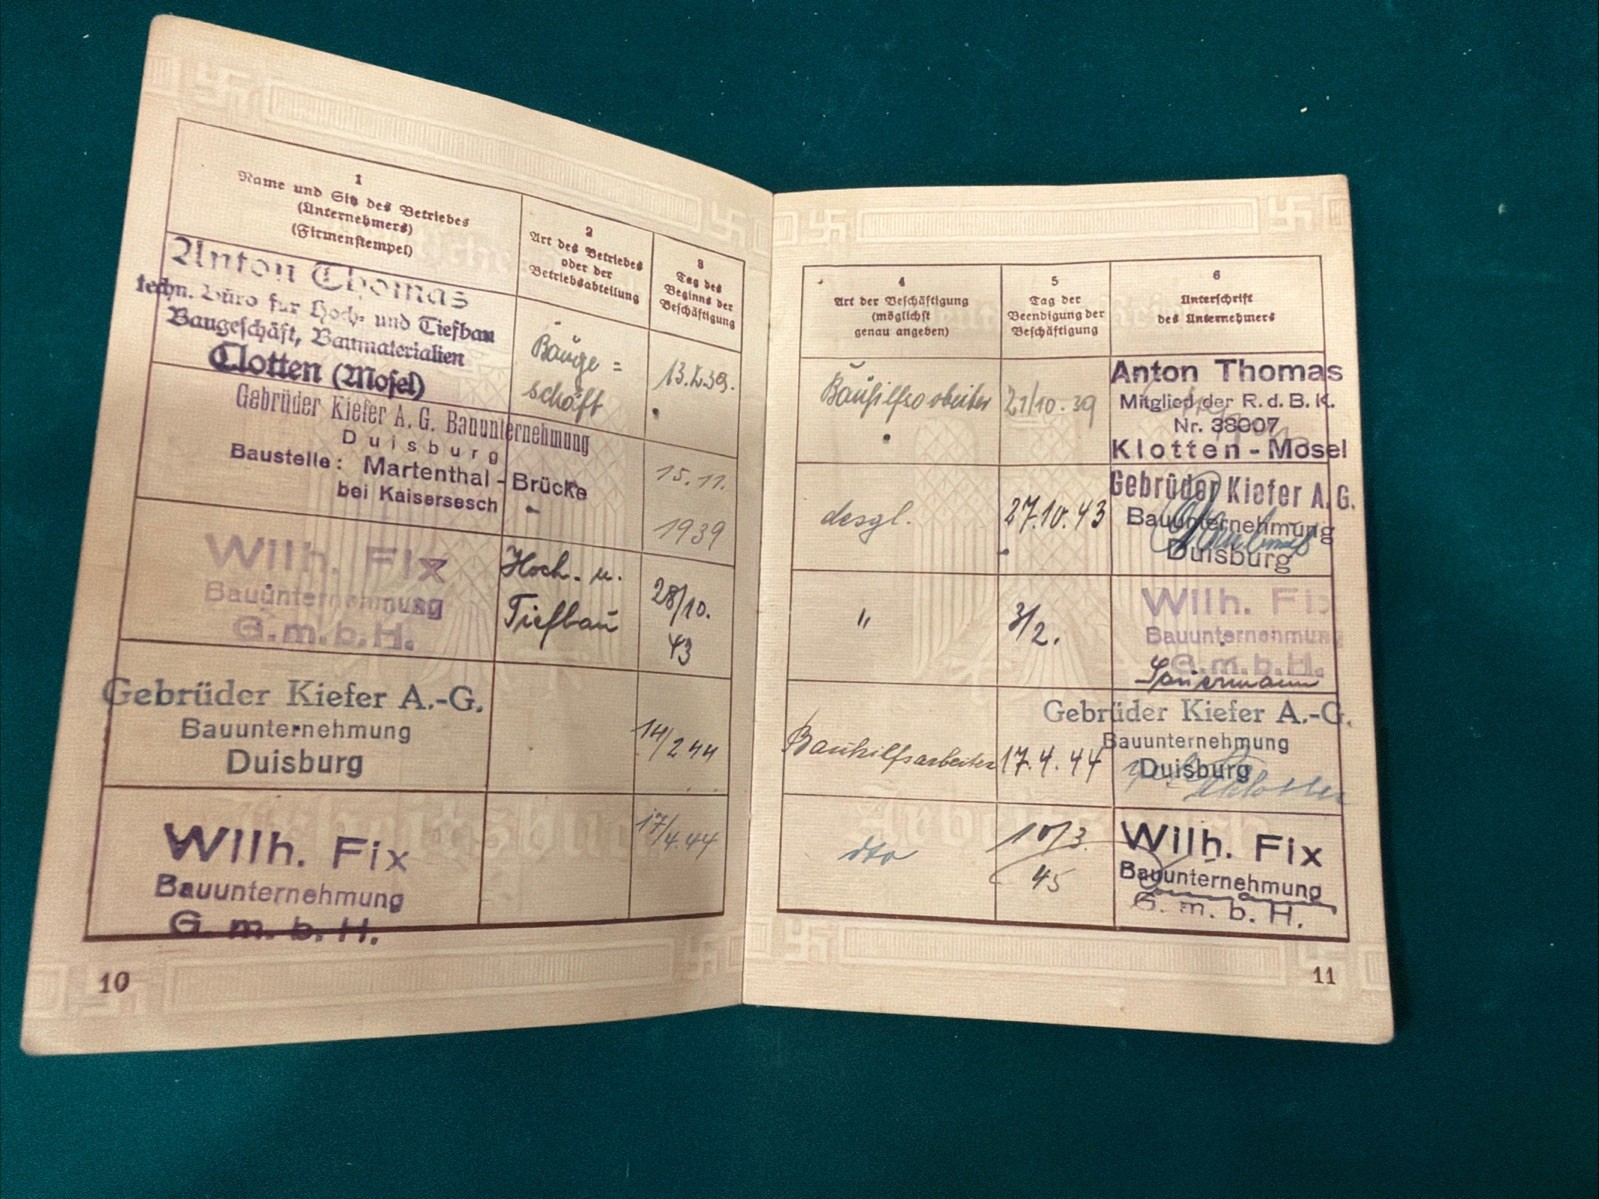 1
Name und Sitz des Betriebes
(Unternehmers)
(Firmenstempel)
2
Art des Betriebes
oder der
Betriebsabteilung
3
Tag des
Beginns der
Beschäftigung
Anton Thomas
techn. Büro für Hoch- und Tiefbau
Baugeschäft, Baumaterialien
Clotten (Mosel)
Bauge=
schäft
Gebrüder Kiefer A.G. Bauunternehmung
Duisburg
Baustelle: Martenthal-Brücke
bei Kaisersesch
15.11.
1939
Wilh. Fix
Bauunternehmung
G.m.b.H.
Hoch- u.
Tiefbau
28/10.
43
Gebrüder Kiefer A.-G.
Bauunternehmung
Duisburg
14/2 44
Wilh. Fix
Bauunternehmung
G.m.b.H.
17/4.44
10
4
Art der Beschäftigung
(möglichst
genau angeben)
5
Tag der
Beendigung der
Beschäftigung
6
Unterschrift
des Unternehmers
Bauhilfsarbeiter
21/10.39
Anton Thomas
Mitglied der R.d.B.K.
Nr. 38007
Klotten-Mosel
desgl.
27.10.43
Gebrüder Kiefer A.G.
Bauunternehmung
Duisburg
"
3/2.
Wilh. Fix
Bauunternehmung
G.m.b.H.
Bauhilfsarbeiter
17.4.44
Gebrüder Kiefer A.-G.
Bauunternehmung
Duisburg
dto
10/3.
45
Wilh. Fix
Bauunternehmung
G.m.b.H.
11